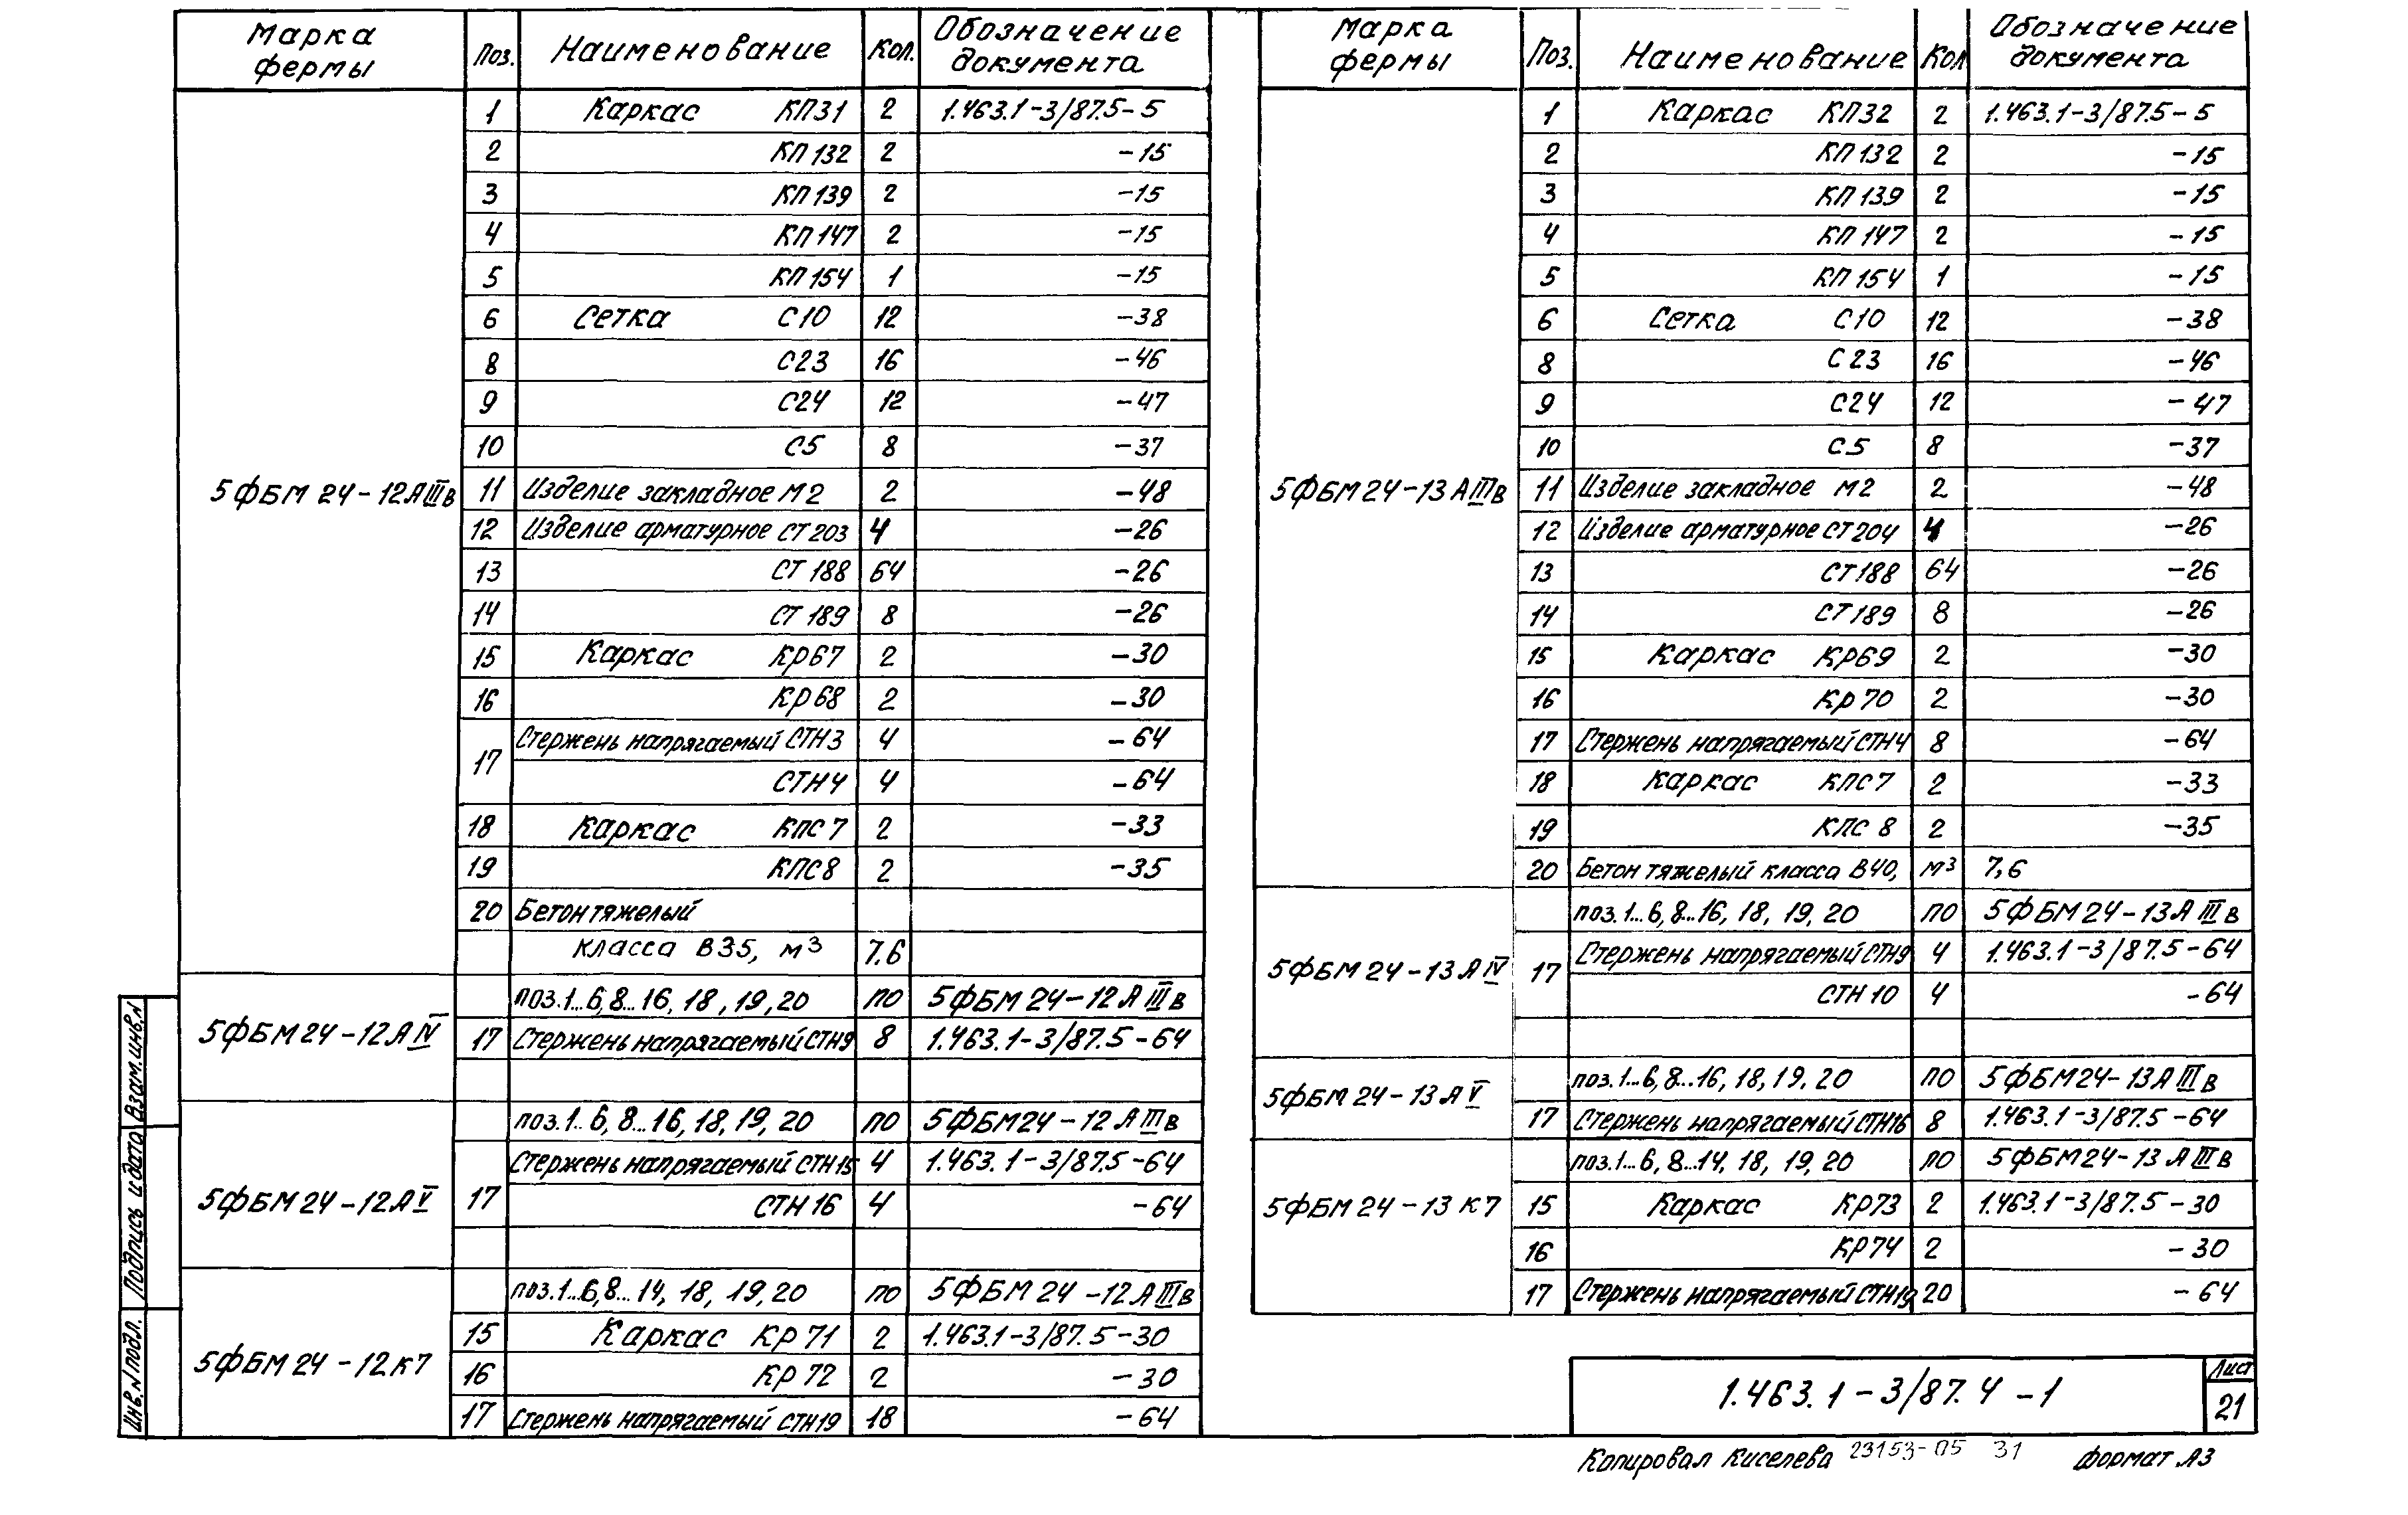 Марка фермы Поз. Наименование Кол. Обозначение документа
1 Каркас КП31 2 1.463.1-3/87.5-5
2 КП132 2 -15
3 КП139 2 -15
4 КП147 2 -15
5 КП154 1 -15
6 Сетка С10 12 -38
8 С23 16 -46
9 С24 12 -47
10 С5 8 -37
5ФБМ24-12АIIIв 11 Изделие закладное М2 2 -48
12 Изделие арматурное СТ203 4 -26
13 СТ188 64 -26
14 СТ189 8 -26
15 Каркас КР67 2 -30
16 КР68 2 -30
17 Стержень напрягаемый СТН3 4 -64
СТН4 4 -64
18 Каркас КПС7 2 -33
19 КПС8 2 -35
20 Бетон тяжелый
класса В35, м³ 7.6
поз.1...6,8...16,18,19,20 по 5ФБМ24-12АIIIв
5ФБМ24-12АIV 17 Стержень напрягаемый СТН9 8 1.463.1-3/87.5-64
поз.1..6,8...16,18,19,20 по 5ФБМ24-12АIIIв
5ФБМ24-12АV 17 Стержень напрягаемый СТН15 4 1.463.1-3/87.5-64
СТН16 4 -64
поз.1...6,8...14,18,19,20 по 5ФБМ24-12АIIIв
5ФБМ24-12К7 15 Каркас КР71 2 1.463.1-3/87.5-30
16 КР72 2 -30
17 Стержень напрягаемый СТН19 18 -64
Марка фермы Поз. Наименование Кол Обозначение документа
1 Каркас КП32 2 1.463.1-3/87.5-5
2 КП132 2 -15
3 КП139 2 -15
4 КП147 2 -15
5 КП154 1 -15
6 Сетка С10 12 -38
8 С23 16 -46
9 С24 12 -47
10 С5 8 -37
5ФБМ24-13АIIIв 11 Изделие закладное М2 2 -48
12 Изделие арматурное СТ204 4 -26
13 СТ188 64 -26
14 СТ189 8 -26
15 Каркас КР69 2 -30
16 КР70 2 -30
17 Стержень напрягаемый СТН4 8 -64
18 Каркас КПС7 2 -33
19 КПС8 2 -35
20 Бетон тяжелый класса В40, м³ 7,6
поз.1...6,8...16,18,19,20 по 5ФБМ24-13АIIIв
5ФБМ24-13АIV 17 Стержень напрягаемый СТН9 4 1.463.1-3/87.5-64
СТН10 4 -64
поз.1...6,8...16,18,19,20 по 5ФБМ24-13АIIIв
5ФБМ24-13АV 17 Стержень напрягаемый СТН16 8 1.463.1-3/87.5-64
поз.1...6,8...14,18,19,20 по 5ФБМ24-13АIIIв
5ФБМ24-13К7 15 Каркас КР73 2 1.463.1-3/87.5-30
16 КР74 2 -30
17 Стержень напрягаемый СТН19 20 -64
Инв.N подл. Подпись и дата Взам.инв.N
1.463.1-3/87.4-1 Лист 21
Копировал Киселева 23153-05 31 формат А3